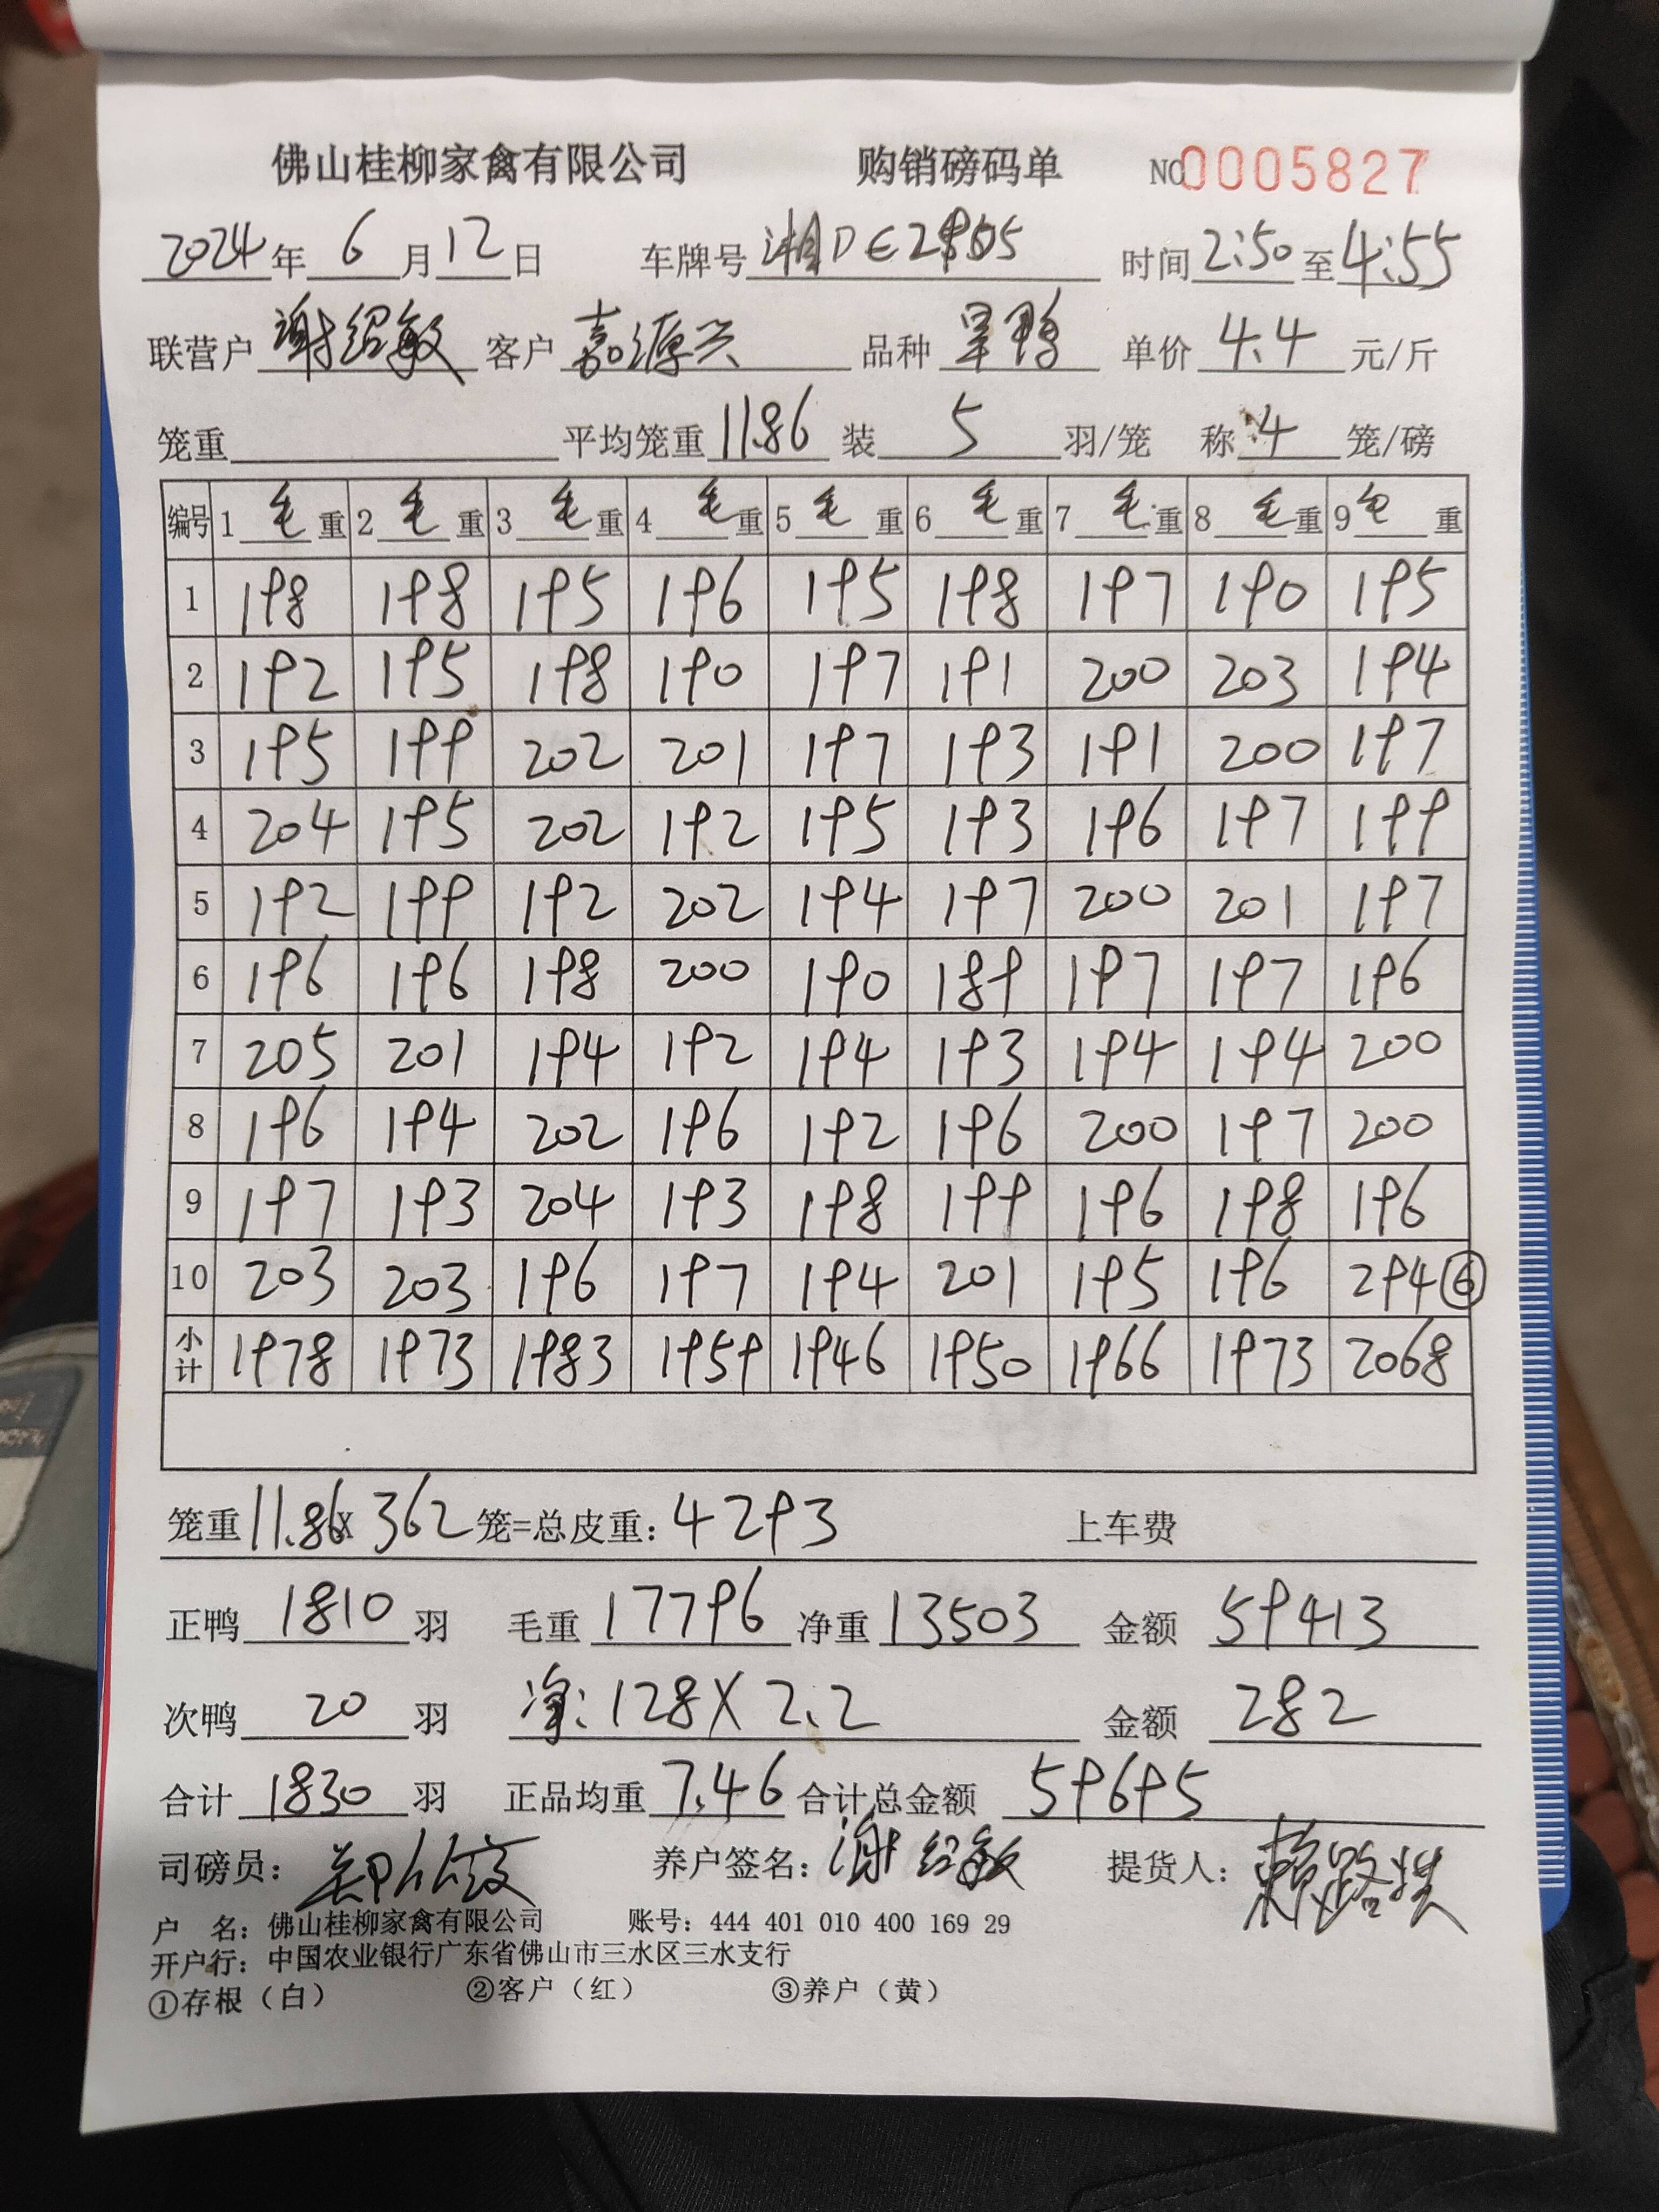 佛山桂柳家禽有限公司 购销磅码单 NO0005827
2024年6月12日 车牌号 时间2:50至4:55
联营户谢绍敏 客户嘉源兴 品种旱鸭 单价4.4元/斤
笼重 平均笼重11.86 装5羽/笼 称4笼/磅
编号 1毛重 2毛重 3毛重 4毛重 5毛重 6毛重 7毛重 8毛重 9毛重
1 198 198 195 196 195 198 197 190 195
2 192 195 198 190 197 191 200 203 194
3 195 199 202 201 197 193 191 200 197
4 204 195 202 192 195 193 196 197 199
5 192 199 192 202 194 197 200 201 197
6 196 196 198 200 190 189 197 197 196
7 205 201 194 192 194 193 194 194 200
8 196 194 202 196 192 196 200 197 200
9 197 193 204 193 198 199 196 198 196
10 203 203 196 197 194 201 195 196 294⑥
小计 1978 1973 1983 1959 1946 1950 1966 1973 2068
笼重11.86X362笼=总皮重:4293 上车费
正鸭1810羽 毛重17796 净重13503 金额59413
次鸭20羽 净:128X2.2 金额282
合计1830羽 正品均重7.46 合计总金额59695
司磅员: 养户签名:谢绍敏 提货人:
户 名:佛山桂柳家禽有限公司 账号:444 401 010 400 169 29
开户行:中国农业银行广东省佛山市三水区三水支行
①存根（白） ②客户（红） ③养户（黄）